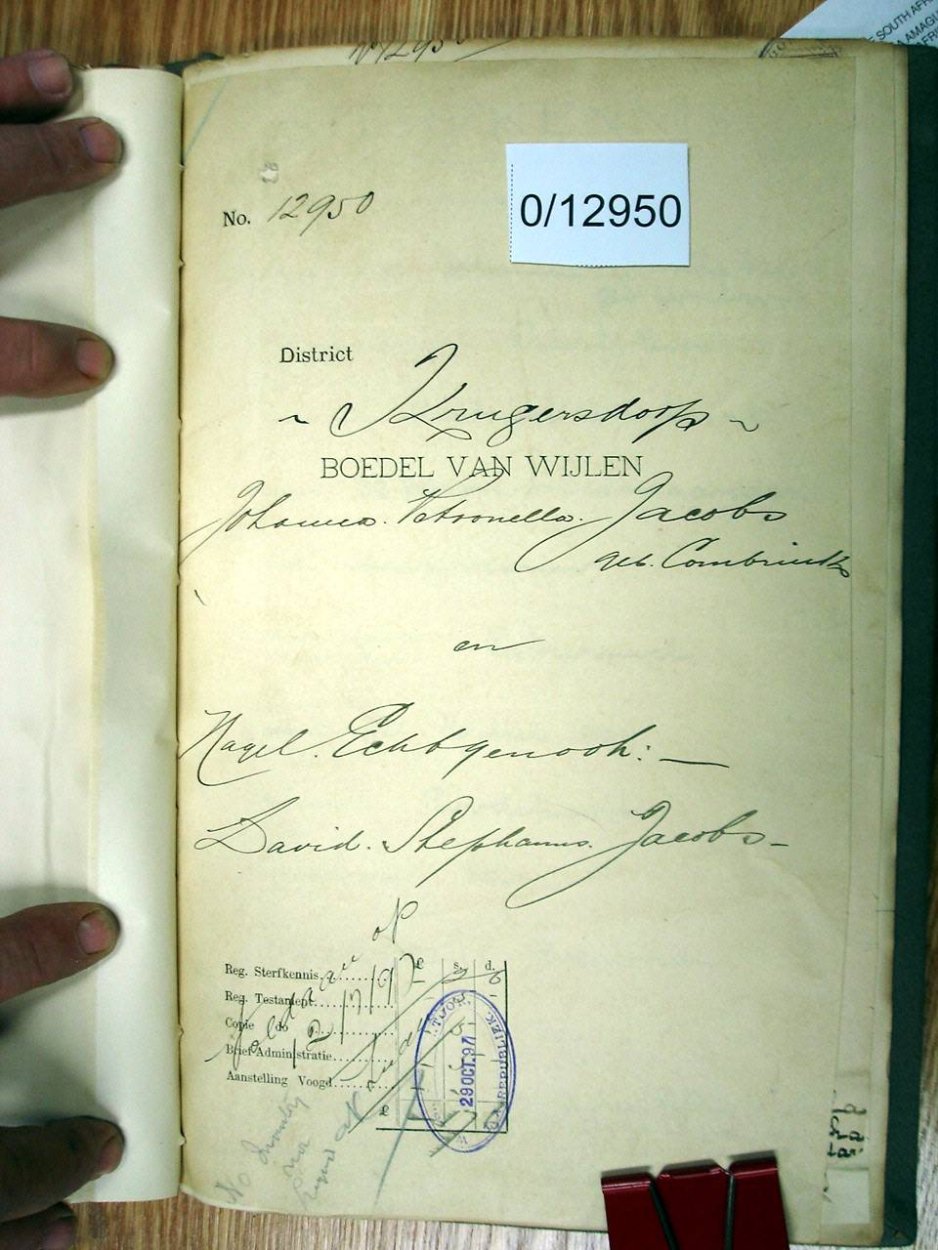 No. 12950
0/12950
District
~ Krugersdorp ~
BOEDEL VAN WIJLEN
Johanna. Petronella. Jacobs
geb. Combrink
en
Nagel. Echtgenoot: —
David. Stephanus. Jacobs -
£ s. d.
Reg. Sterfkennis
Reg. Testament
Copie do
Brief Administratie
Aanstelling Voogd
£
29 OCT. 97
REPUBLIEK
No